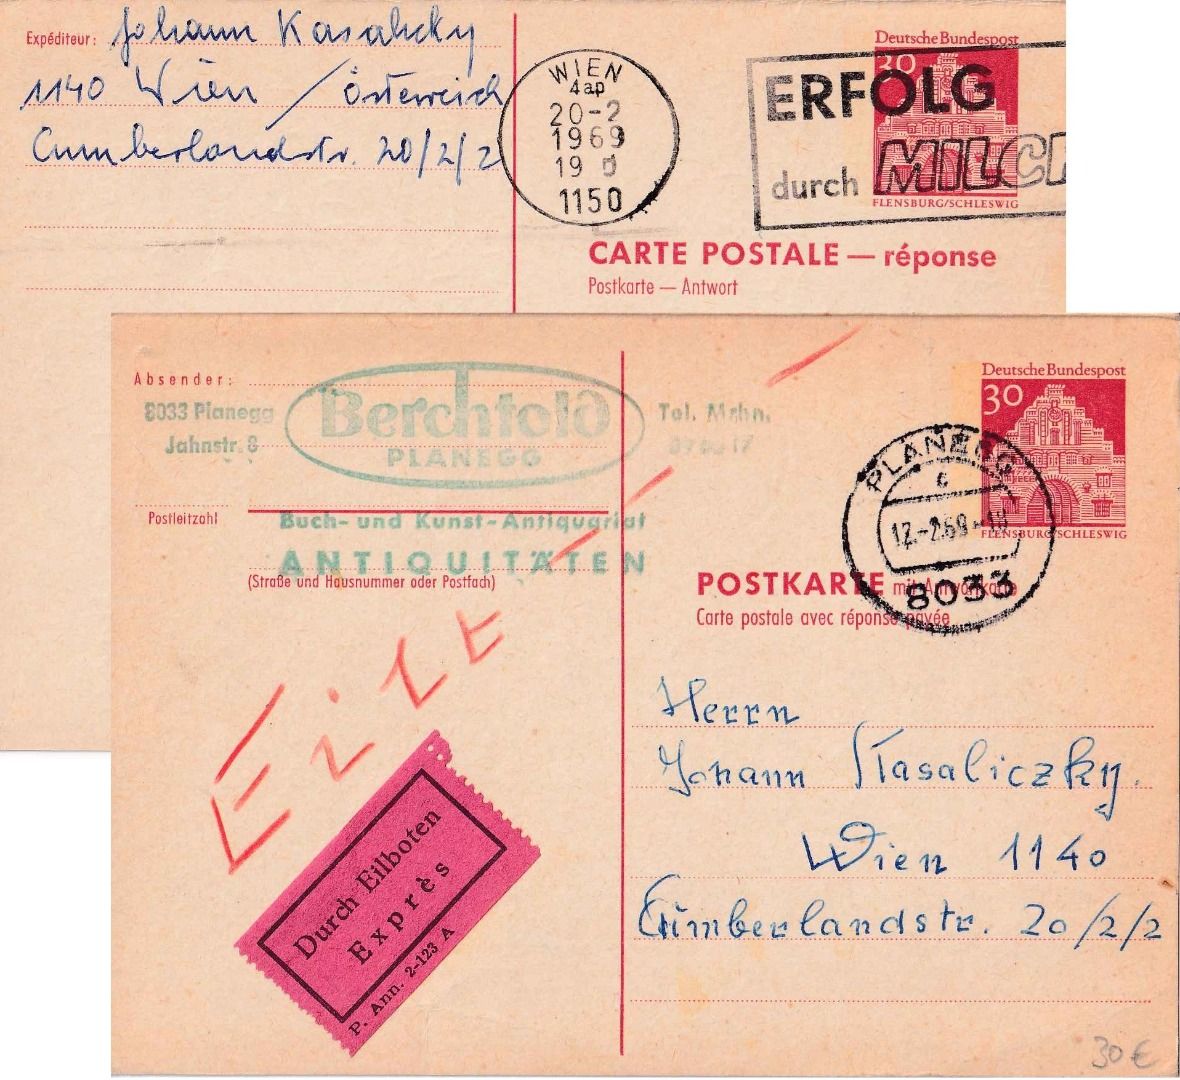 Expéditeur: Johann Kasalicky
1140 Wien / Österreich
Cumberlandstr. 20/2/2
WIEN
4ap
20-2
1969
19
1150
Deutsche Bundespost
30
FLENSBURG/SCHLESWIG
ERFOLG
durch MILCH
CARTE POSTALE — réponse
Postkarte — Antwort
Absender:
8033 Planegg
Jahnstr. 8
Berchtold
PLANEGG
Tel. Mchn.
Postleitzahl
Buch- und Kunst-Antiquariat
ANTIQUITÄTEN
(Straße und Hausnummer oder Postfach)
Deutsche Bundespost
30
FLENSBURG/SCHLESWIG
PLANEGG
c
12.-2.69-18
8033
POSTKARTE mit Antwortkarte
Carte postale avec réponse payée
Eilt
Durch Eilboten
Exprès
P. Ann. 2-123 A
Herrn
Johann Kasaliczky.
Wien 1140
Cumberlandstr. 20/2/2
30 €